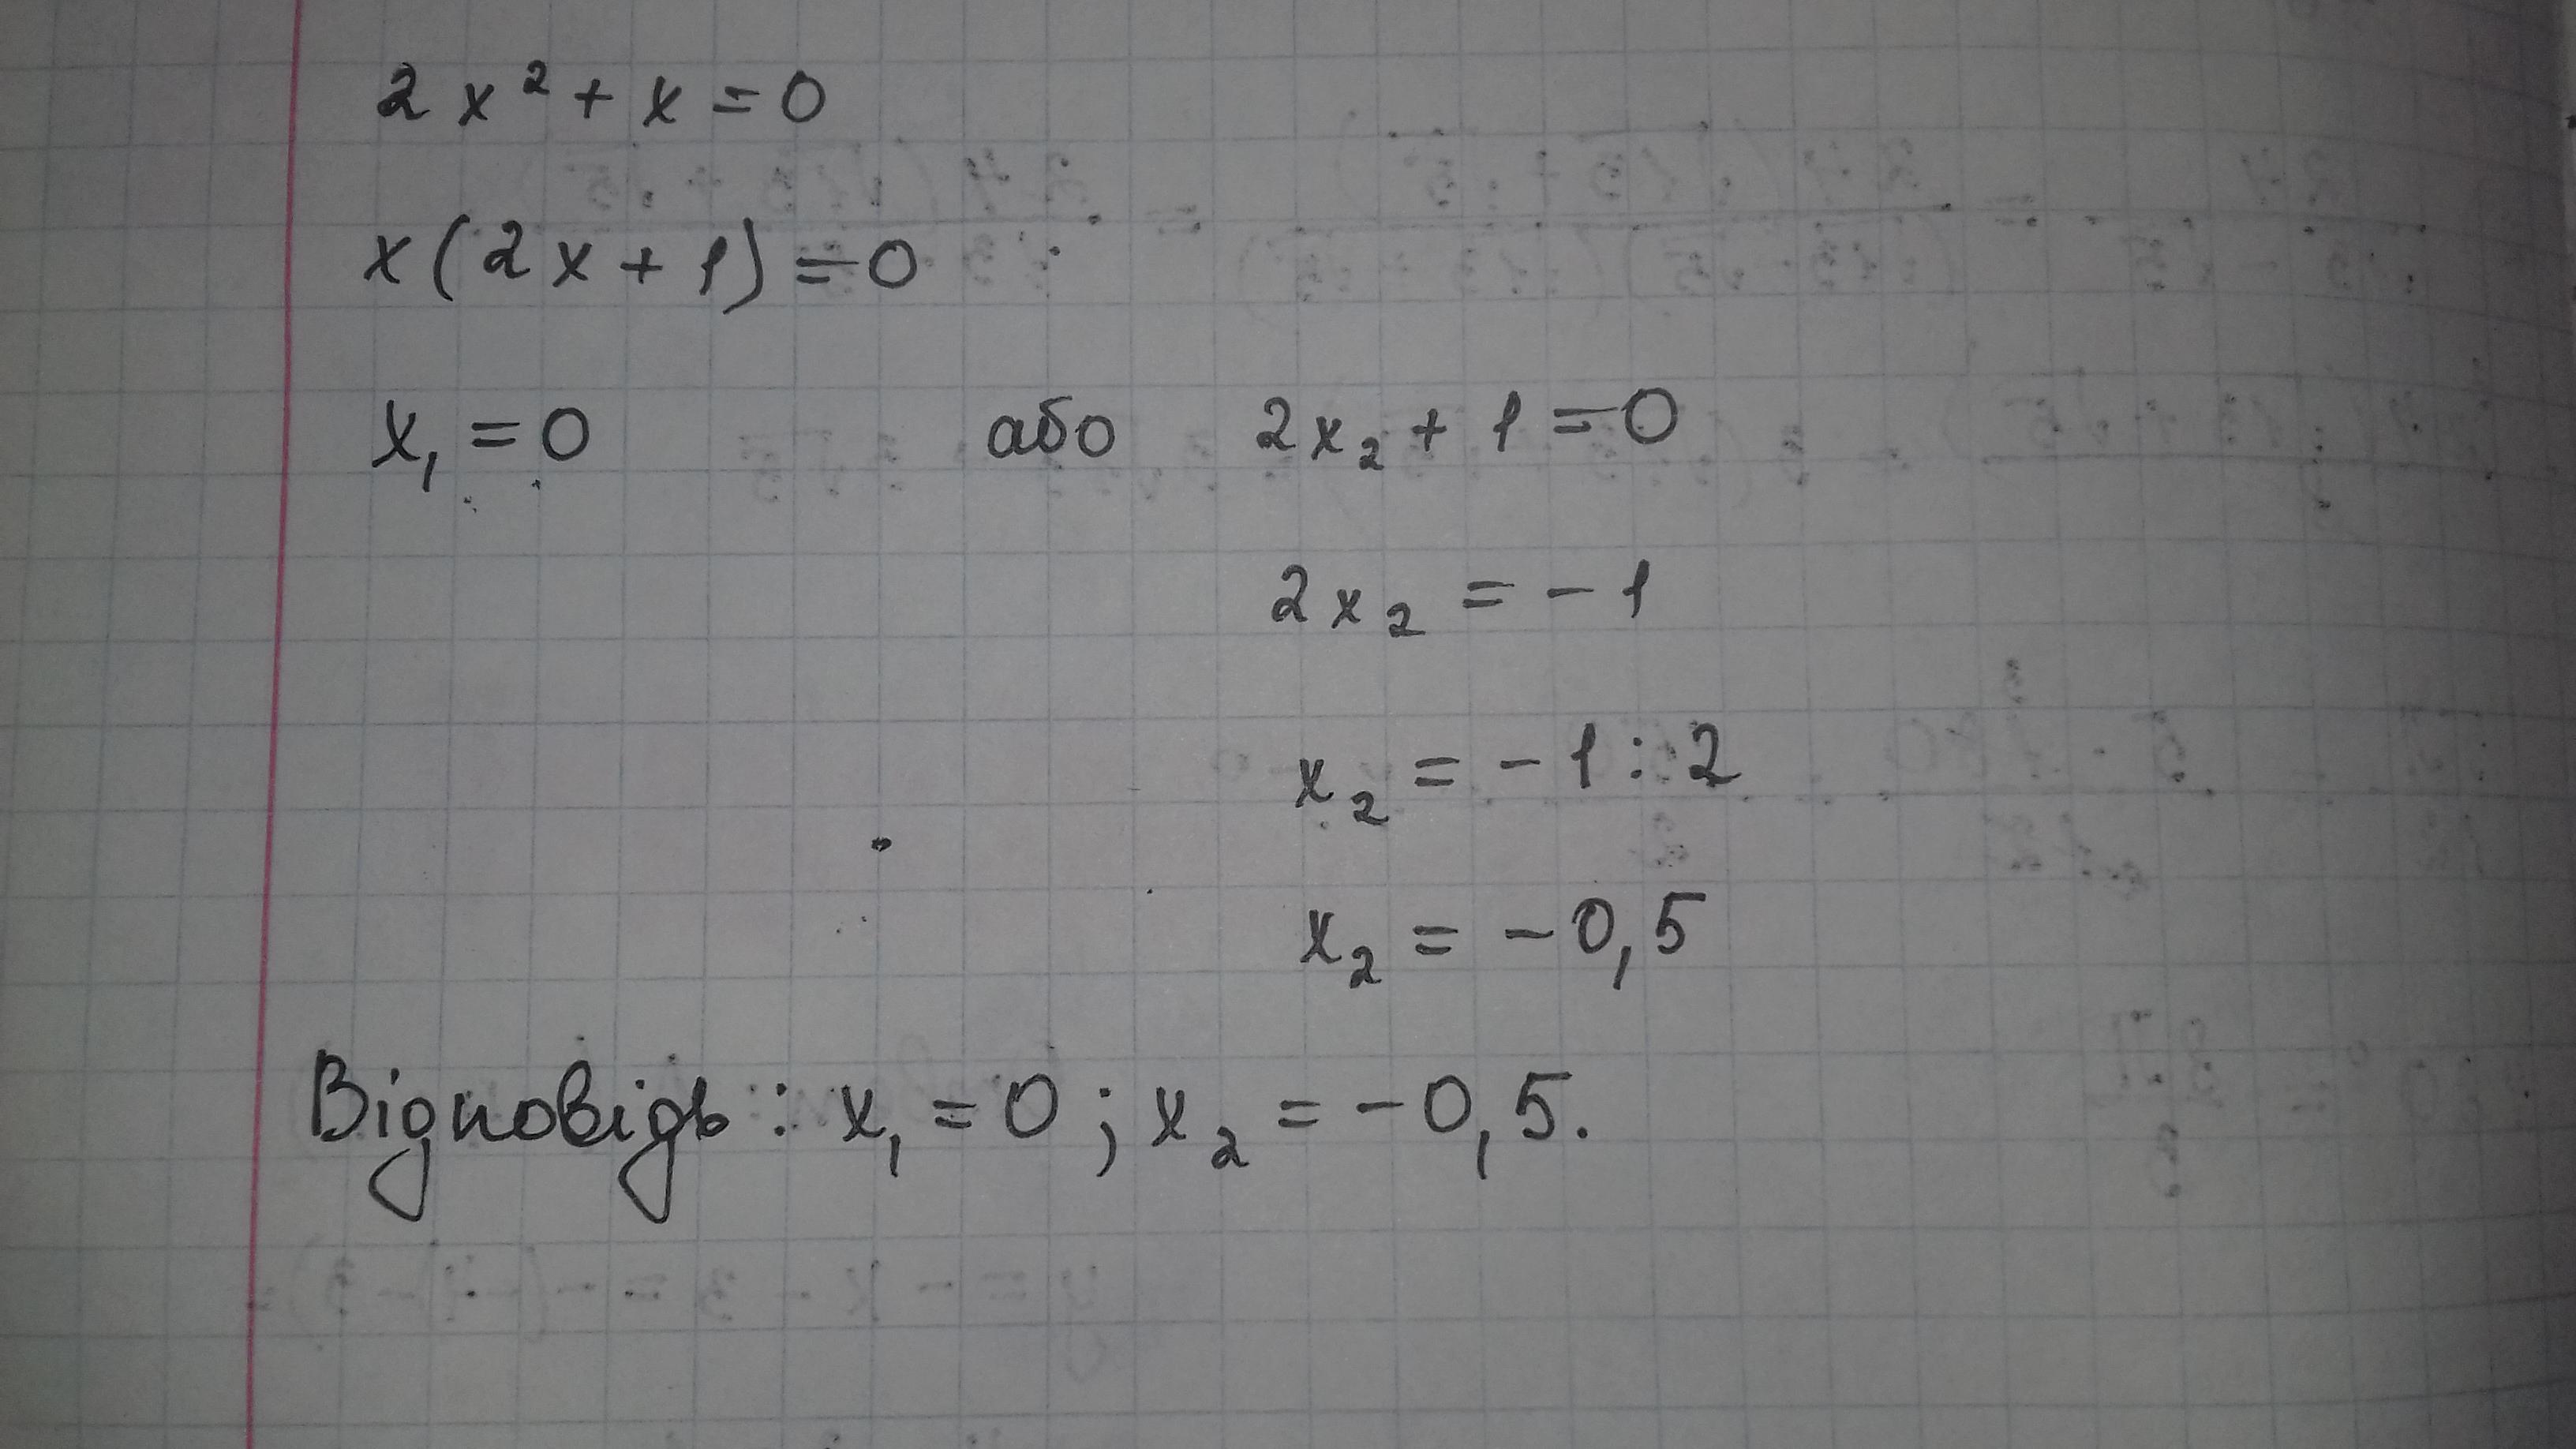 2x² + x = 0
x(2x + 1) = 0
x₁ = 0 або 2x₂ + 1 = 0
2x₂ = -1
x₂ = -1 : 2
x₂ = -0,5
Відповідь: x₁ = 0; x₂ = -0,5.